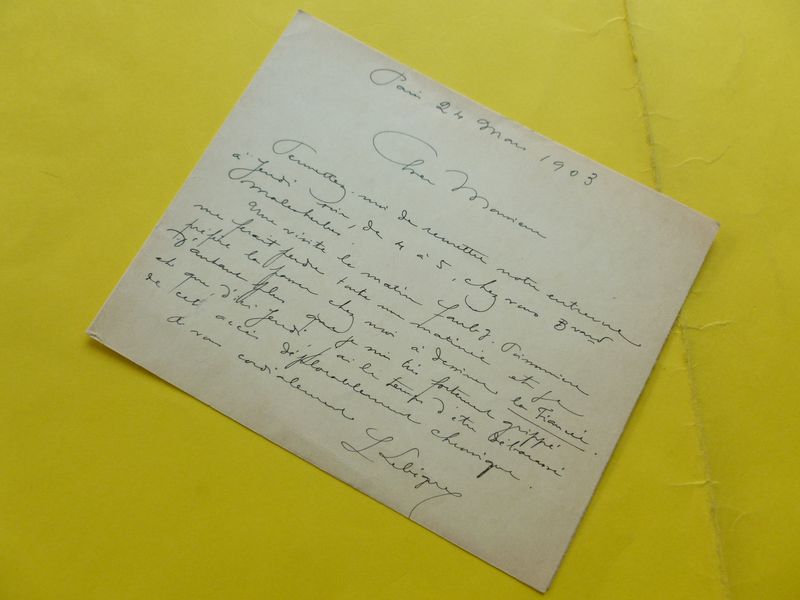 Paris 24 Mars 1903
Cher Monsieur
Permettez-moi de remettre notre entrevue
à Jeudi soir, de 4 à 5, chez vous Bvard
Malesherbes.
Une visite le matin Faubg. Poissonnière
me ferait perdre toute ma matinée et je
préfère la passer chez moi à dessiner la Fiancée.
D'autant plus que je suis très fortement grippé
et que d'ici Jeudi j'ai le temps d'être débarrassé
de cet accès déplorablement chronique.
à vous cordialement
L Lebègue